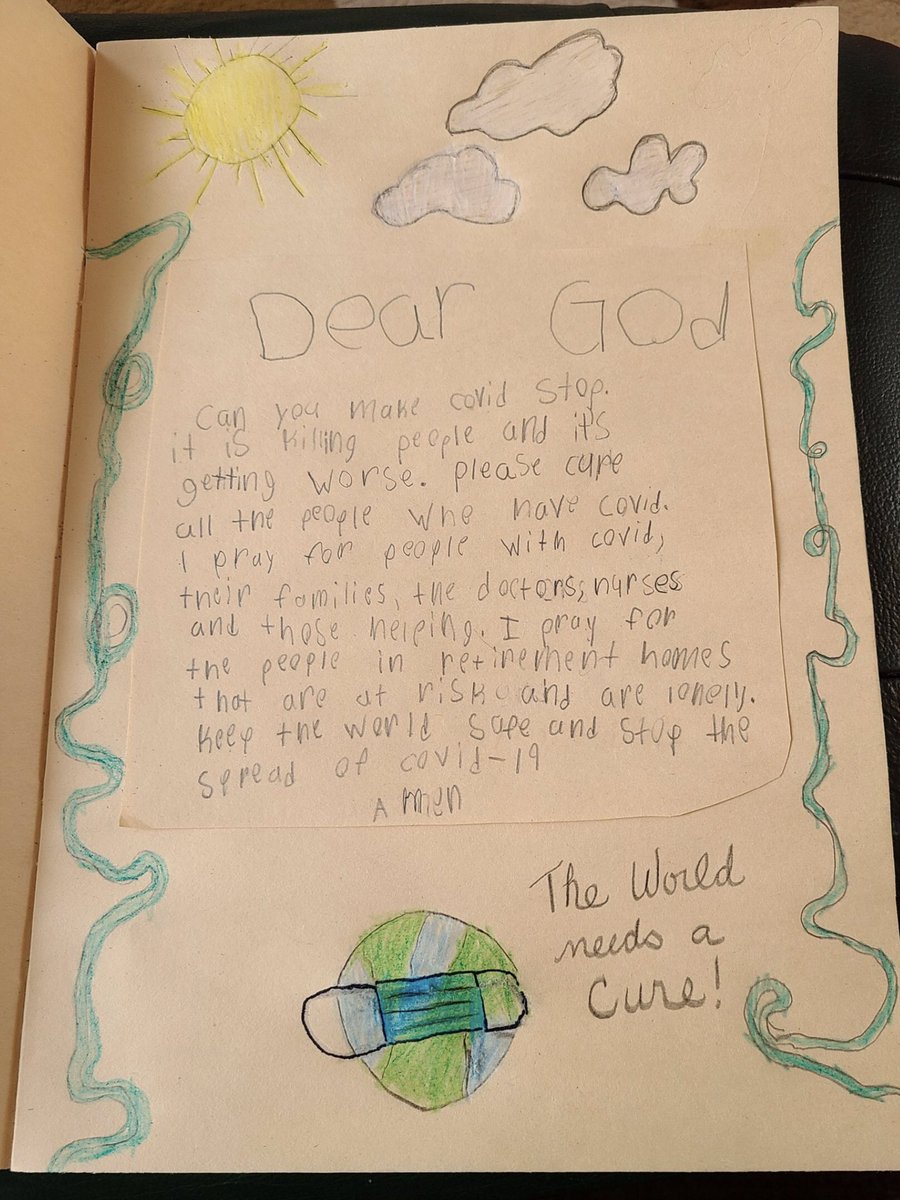 Dear God
Can you make covid stop.
it is killing people and it's
getting worse. please cure
all the people who have covid.
I pray for people with covid,
their families, the doctors, nurses
and those helping. I pray for
the people in retirement homes
that are at risk and are lonely.
Keep the world safe and stop the
spread of covid-19
Amen
The World
needs a
Cure!